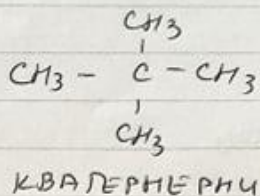 CH3
CH3 – C – CH3
CH3
КВАТЕРНЕРНИ